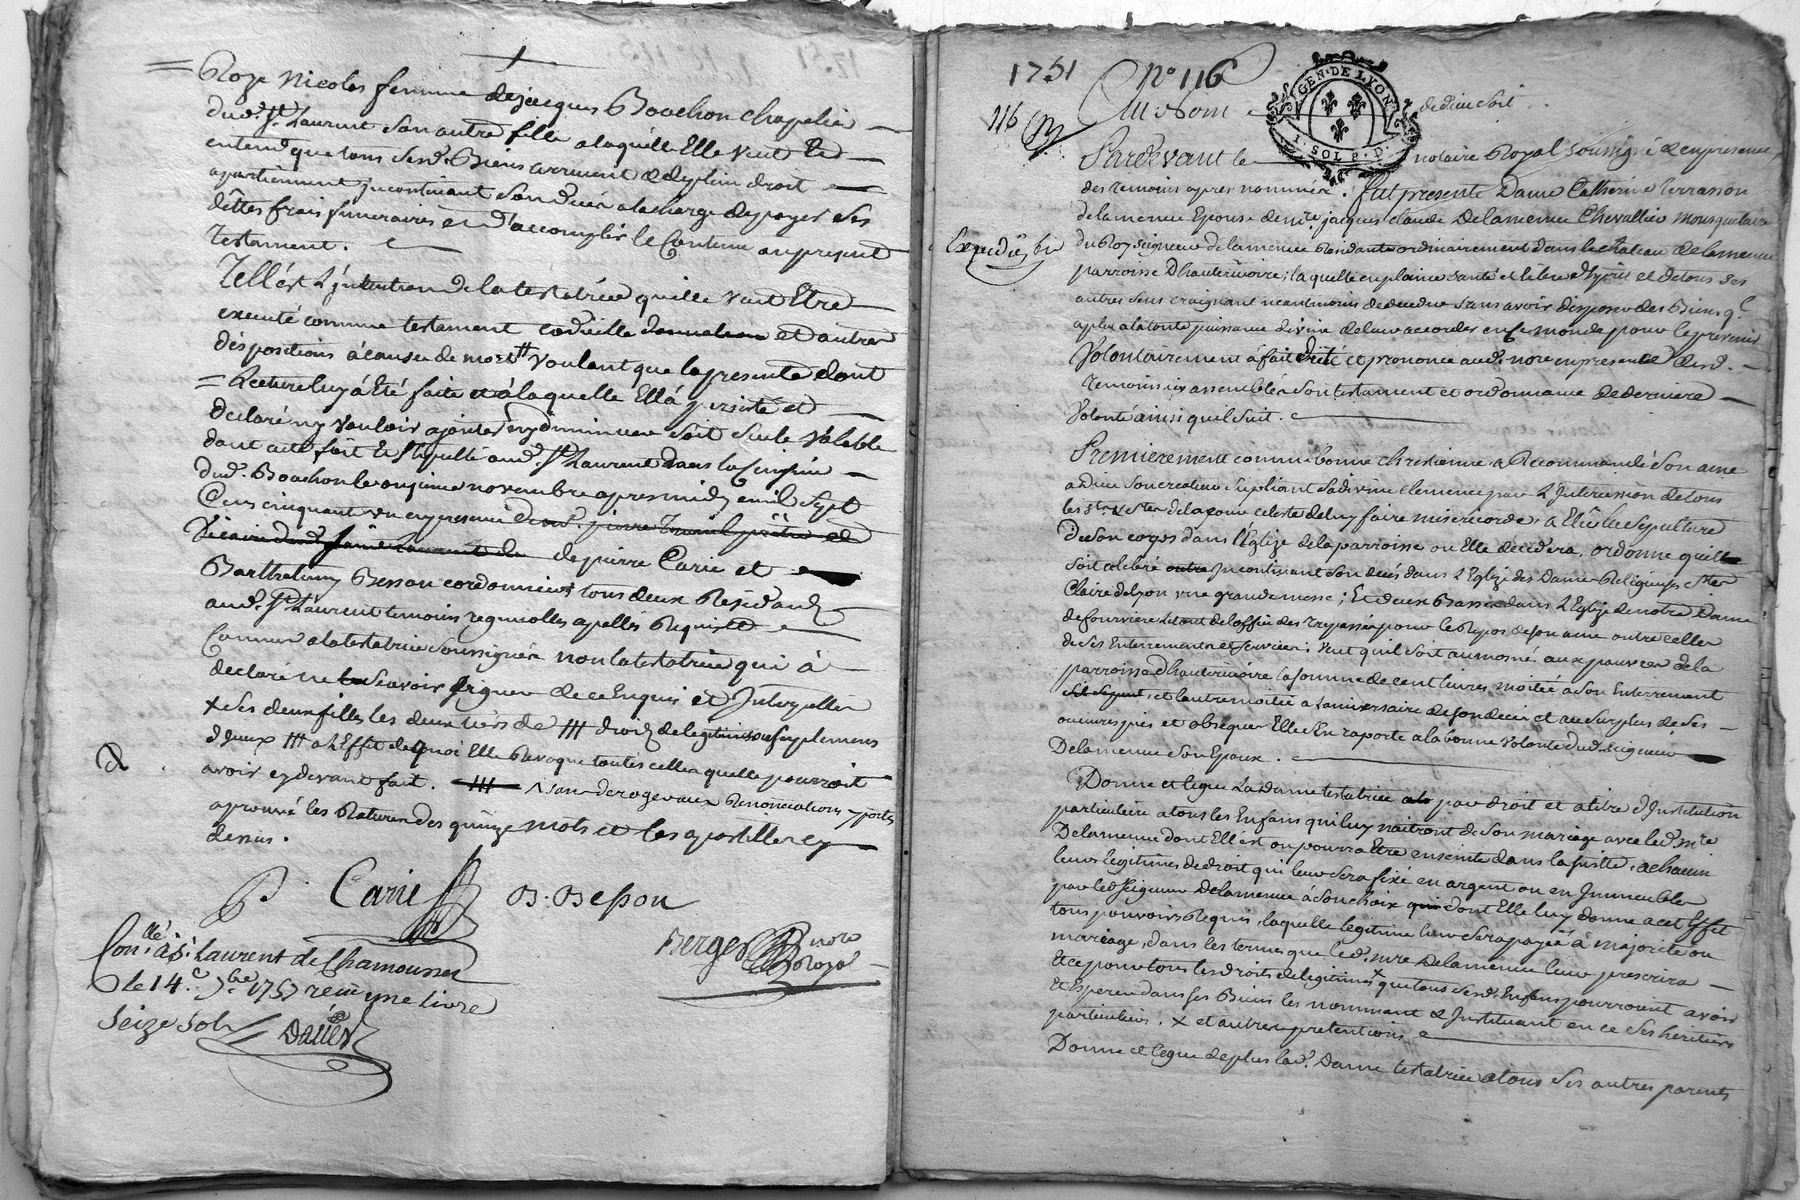 Roze Nicolas femme de jacques Bouchon chapelier
dud. St Laurent son autre fille a laquelle Elle veut et
entend que tous sesd. Biens arrivent & de plein droit
apartiennent jncontinant son decés a la charge de payer ses
dettes frais funeraires et d'accomplir le Contenu au present
Testament.
Tell est L'jntention de la testatrice quelle veut Etre
executé comme testament codicille donnation et autres
dispositions à cause de mort voulant que la presente dont
Lecture luy à Eté faite et à laquelle Ellá persisté et
declaré ny vouloir ajouter ny diminuer soit seule valable
dont acte fait et stipullé aud. St Laurent dans la
dud. Bouchon le onzieme novembre apres midy mil sept
Cens cinquant un en presence de
de pierre Carie et
Barthelemy Besson cordonniers tous deux Residants
aud. St Laurent temoins requis
Connue a la testatrice soussignés non la testatrice qui à
declaré ne Scavoir signer de ce Enquis et Interpellée
x ses deux filles les deux tiers de droit de legitime et suplement
d'jceux a L'Effet de quoi Elle Revoque toutes celles quelle pourroit
avoir cy devant fait. sans deroger aux Renonciations y portés
aprouvé les Ratures des quinze mots et les apostilles cy
dessus.
P. Carie B. Besson
Berger nore Royal
Conllé à St Laurent de Chamousset
le 14e 9bre 1751 reçu une livre
seize sols Daver
1751 No 116
116
Au Nom de dieu soit
GEN. DE LYON
I. SOL P. D.
Pardevant le notaire Royal soussigné & en presence
des temoins apres nommés. fut presente Dame Catherine Terrasson
delamenue Epouse de mre jacques claude Delamenue Chevallier mousquetaire
Expedié
du Roy seigneur delamenue Residante ordinairement dans le chateau delamenue
parroisse d'hauterivoire; laquelle en plaine santé et libre d'Esprit et de tous ses
autres sens craignant neantmoins de deceder sans avoir disposé des Biens q.
a plu a la toute puissance divine de luy accorder en ce monde pour le prevenir
Volontairement á fait dicté et prononcé aud. nore en presence desd.
Temoins icy assemblés son testament et ordonnance de derniere
Volonté ainsi quil suit.
Premierement comme bonne chrestienne a Recommandé son ame
a dieu son createur supliant sa divine clemence par L'Intercession de tous
les Sts & Stes de la cour celeste de luy faire misericorde, a Elû la sepulture
de son corps dans L'Eglize de la parroisse ou Elle decedera, ordonne quil
soit celebré jncontinant son decés dans L'Eglize des Dames Religieuses Ste
Claire de lyon une grande messe; Et deux Basses dans L'Eglize de notre Dame
de fourviere de l'office des Trepassés pour le Repos de son ame outre celles
de ses Enterrements et services; Veut quil soit aumosné aux pauvres de la
parroisse d'hauterivoire la somme de cent livres moitié a son Enterrement
et l'autre moitié a L'aniversaire de son decés et au surplus de ses
oeuvres pies et obseques Elle s'En raporte a la bonne volonté dud. seigneur
Delamenue son Epoux.
Donne et legue Lad. dame testatrice par droit et a titre d'Institution
particuliere a tous les Enfans qui luy naitront de son mariage avec led. mre
Delamenue dont Ell'est ou pourra Etre enceinte dans la suitte, a chacun
leurs legitimes de droit qui leur sera fixé en argent ou en Immeubles
par led. seigneur Delamenue à son choix dont Elle luy donne a cet Effet
tous pouvoirs Requis, laquelle legitime leur sera payée à majorité ou
mariage, dans les termes que led. mre Delamenue leur prescrira
Et ce pour tous les droits de legitimes x que tous sesd. Enfans pourroient avoir
Et Esperer dans ses Biens les nommant & Instituant en ce ses heritiers
particuliers. x et autres pretentions.
Donne et legue de plus lad. Dame testatrice a tous ses autres parents